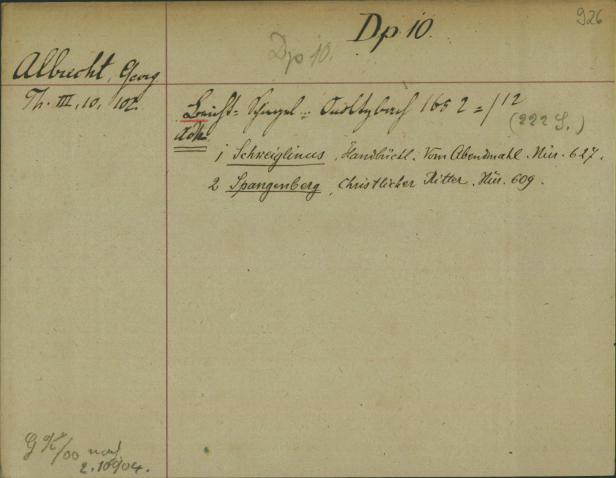 926
Dp 10.
Dp 10.
Albrecht, Georg
Th. III, 10, 102.
Beicht= Spiegel 1652 = / 12
(222 S.)
Adh.
1 Schweiglinus, Handbüchl. Vom Abendmahl. Nür. 627.
2 Spangenberg, Christlicher Ritter. Nür. 609.